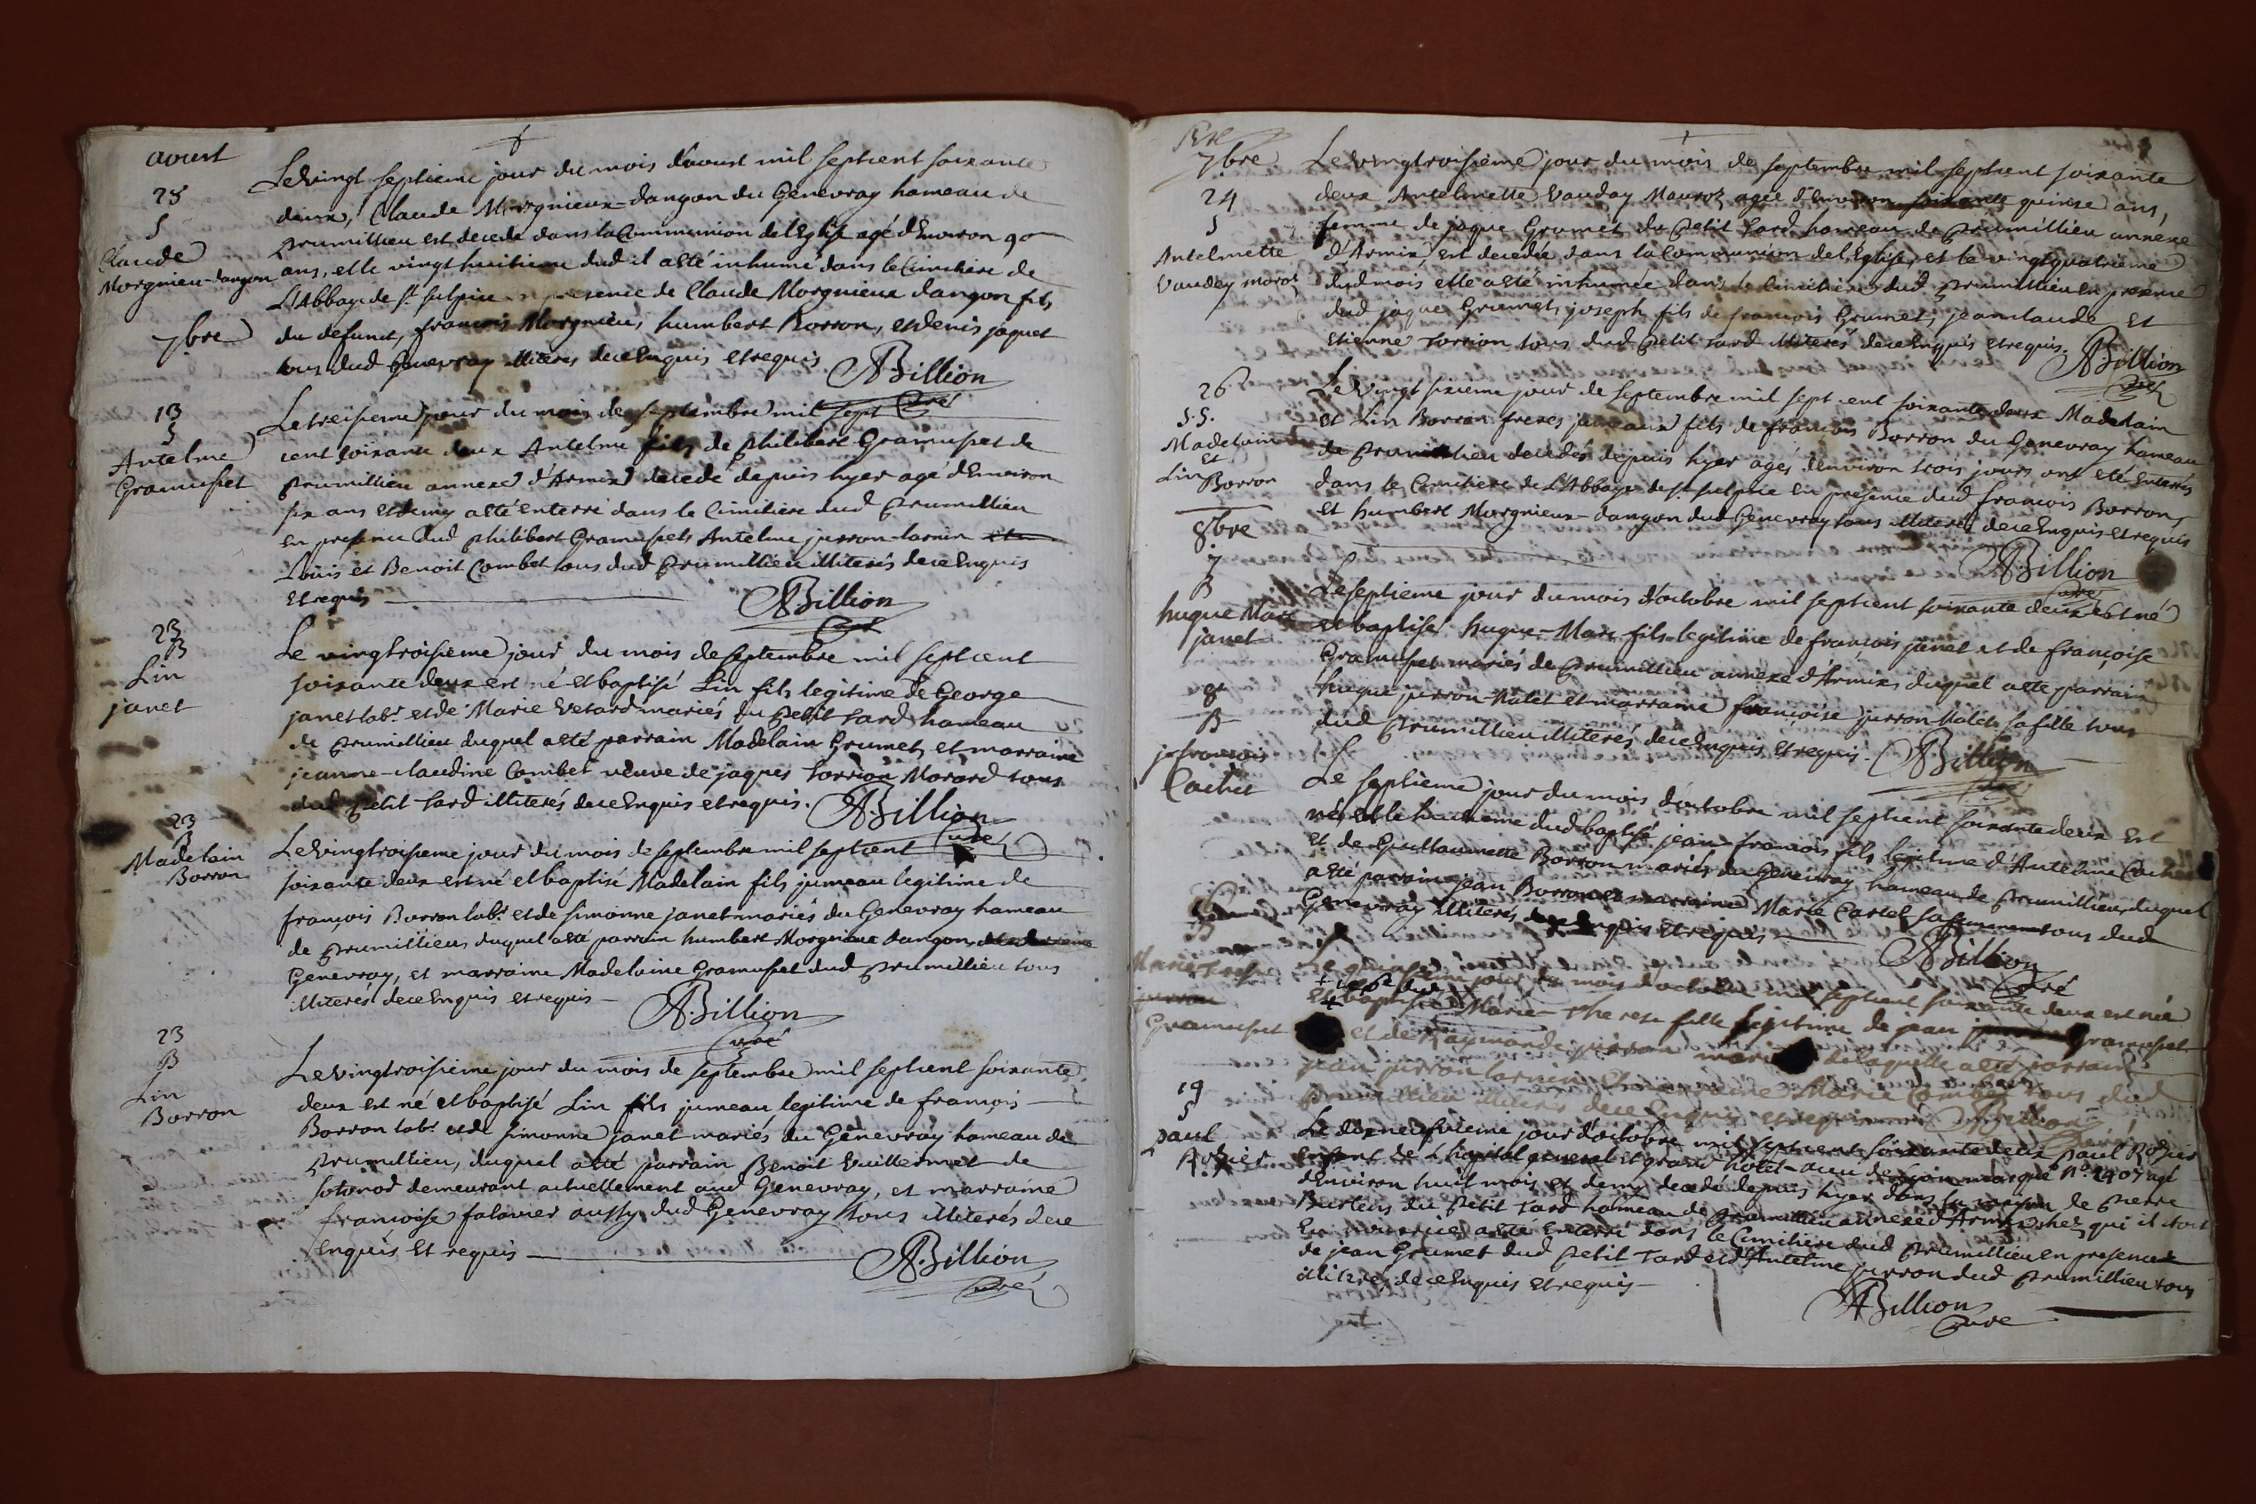 aoust
Le vingt septieme jour du mois d'aoust mil septcent soixante
28
deux, Claude Morgnieux-dangon du Genevray hameau de
S
prumillieu est decedé dans la Communion de l'Eglise agé d'Environ 90
Claude
Morgnieu-dangon
ans, et le vingt huitieme dud il a eté inhumé dans le Cimitiere de
L'Abbaye de St sulpice presence de Claude Morgnieux dangon fils
7bre
du defunct, francois Morgnieu, humbert Borron, et denis jaquet
tous dud Genevray illiterés de ce Enquis et requis
ABillion
Curé
13
Le treisieme jour du mois de septembre mil sept
S
Antelme
Gramuset
cent soixante deux Antelme fils de philibert Gramuset de
prumillieu annexe d'Armix decedé depuis hyer agé d'Environ
six ans et demy a eté enterré dans le Cimitiere dud prumillieu
en presence dud philibert Gramuset, Antelme jurron-larnin
Loüis et Benoit Combet tous dud prumillieu illiterés de ce Enquis
et requis
ABillion
Curé
23
B
Lin
janet
Le vingtroisieme jour du mois de septembre mil septcent
soixante deux est né et baptisé Lin fils legitime de George
janet labr et de Marie Vetard mariés du petit tard hameau
de prumillieu duquel a eté parrain Madelain Grumet, et marraine
jeanne-claudine Combet veuve de jaques torrion Morard tous
dud petit tard illiterés de ce Enquis et requis.
ABillion
Curé
23
B
Madelain
Borron
Le vingtroisieme jour du mois de septembre mil septcent
soixante deux est né et baptisé Madelain fils jumeau legitime de
françois Borron labr et de simonne janet mariés du Genevray hameau
de prumillieu, duquel a eté parrain humbert Morgnieux dangon
Genevray, et marraine Madelaine Gramuset dud prumillieu tous
illiterés de ce Enquis et requis
ABillion
Curé
23
B
Lin
Borron
Le vingtroisieme jour du mois de septembre mil septcent soixante
deux est né et baptisé Lin fils jumeau legitime de françois
Borron labr et de simonne janet mariés du Genevray hameau de
prumillieu, duquel a eté parrain Benoit Vuillermet de
sotonod demeurant actuellement aud Genevray, et marraine
francoise falavier aussy dud Genevray tous illiterés de ce
Enquis et requis
ABillion
Curé
7bre
24
S
Antelmette
Vauday morot
Le vingtroisieme jour du mois de septembre mil septcent soixante
deux Antelmette Vauday Maurot agée d'Environ soixante quinse ans,
femme de jaque Grumet du petit tard hameau de prumillieu annexe
d'Armix est decedée dans la Communion de l'Eglise, et le vingtquatrieme
dud mois elle a eté inhumée dans le Cimitiere dud prumillieu en presence
dud jaque Grumet, joseph fils de francois Grumet, jeanclaude et
Etienne torrion tous dud petit tard illiterés de ce Enquis et requis.
ABillion
Curé
26
S.S.
Madelain
et
Lin
Borron
Le vingt sixieme jour de septembre mil sept cent soixante deux Madelain
et Lin Borron freres jumeaux fils de francois Borron du Genevray hameau
de prumillieu decedés depuis hyer agés d'environ trois jours ont eté enterrés
dans le Cimitiere de L'Abbaye de st sulpice En presence dud francois Borron,
et humbert Morgnieux-dangon dud Genevray tous illiterés de ce Enquis et requis
ABillion
Curé
8bre
7
B
hugue Marc
janet
Le septieme jour du mois d'octobre mil septcent soixante deux est né
et baptisé hugue-Marc fils legitime de francois janet et de françoise
Gramuset mariés de prumillieu annexe d'Armix duquel a eté parrain
hugue jurron-Valet et marraine francoise jurron Valet sa fille tous
dud prumillieu illiterés de ce Enquis et requis.
ABillion
Curé
8
B
jn francois
Cachet
Le septieme jour du mois d'octobre mil septcent soixante deux est
né, et le huitieme dud baptisé jean-francois fils legitime d'Antelme Cachet
et de Guillaumette Borron mariés du Genevray hameau de prumillieu, duquel
a eté parrain jean Borron et marraine Marie Cartel sa femme tous dud
Genevray illiterés de ce Enquis et requis
ABillion
Curé
16
B
Marie therese
Gramuset
Le quinsieme jour du mois d'octobre mil septcent soixante deux est née
et le 16e dud
et baptisée Marie-Therese fille legitime de jean Gramuset
et de Raymonde jurron mariés de laquelle a eté parrain
jean jurron larnin et marraine Marie Combet tous dud
prumillieu illiterés de ce Enquis et requis ABillion
Curé
19
S
paul
Rosier
Le dixneufvieme jour d'octobre mil septcent soixante deux paul Rosier
enfant de L'hopital general et grand hotel-dieu de Lyon marqué No 2907 agé
d'Environ huit mois et demy decedé depuis hyer dans la maison de pierre
Burlens du petit tard hameau de prumillieu annexe d'Armix chez qui il etoit
En nourrice, a eté Enterré dans le Cimitiere dud prumillieu en presence
de jean Grumet dud petit tard et d'Antelme jurron dud prumillieu tous
illiterés de ce Enquis et requis
ABillion
Curé